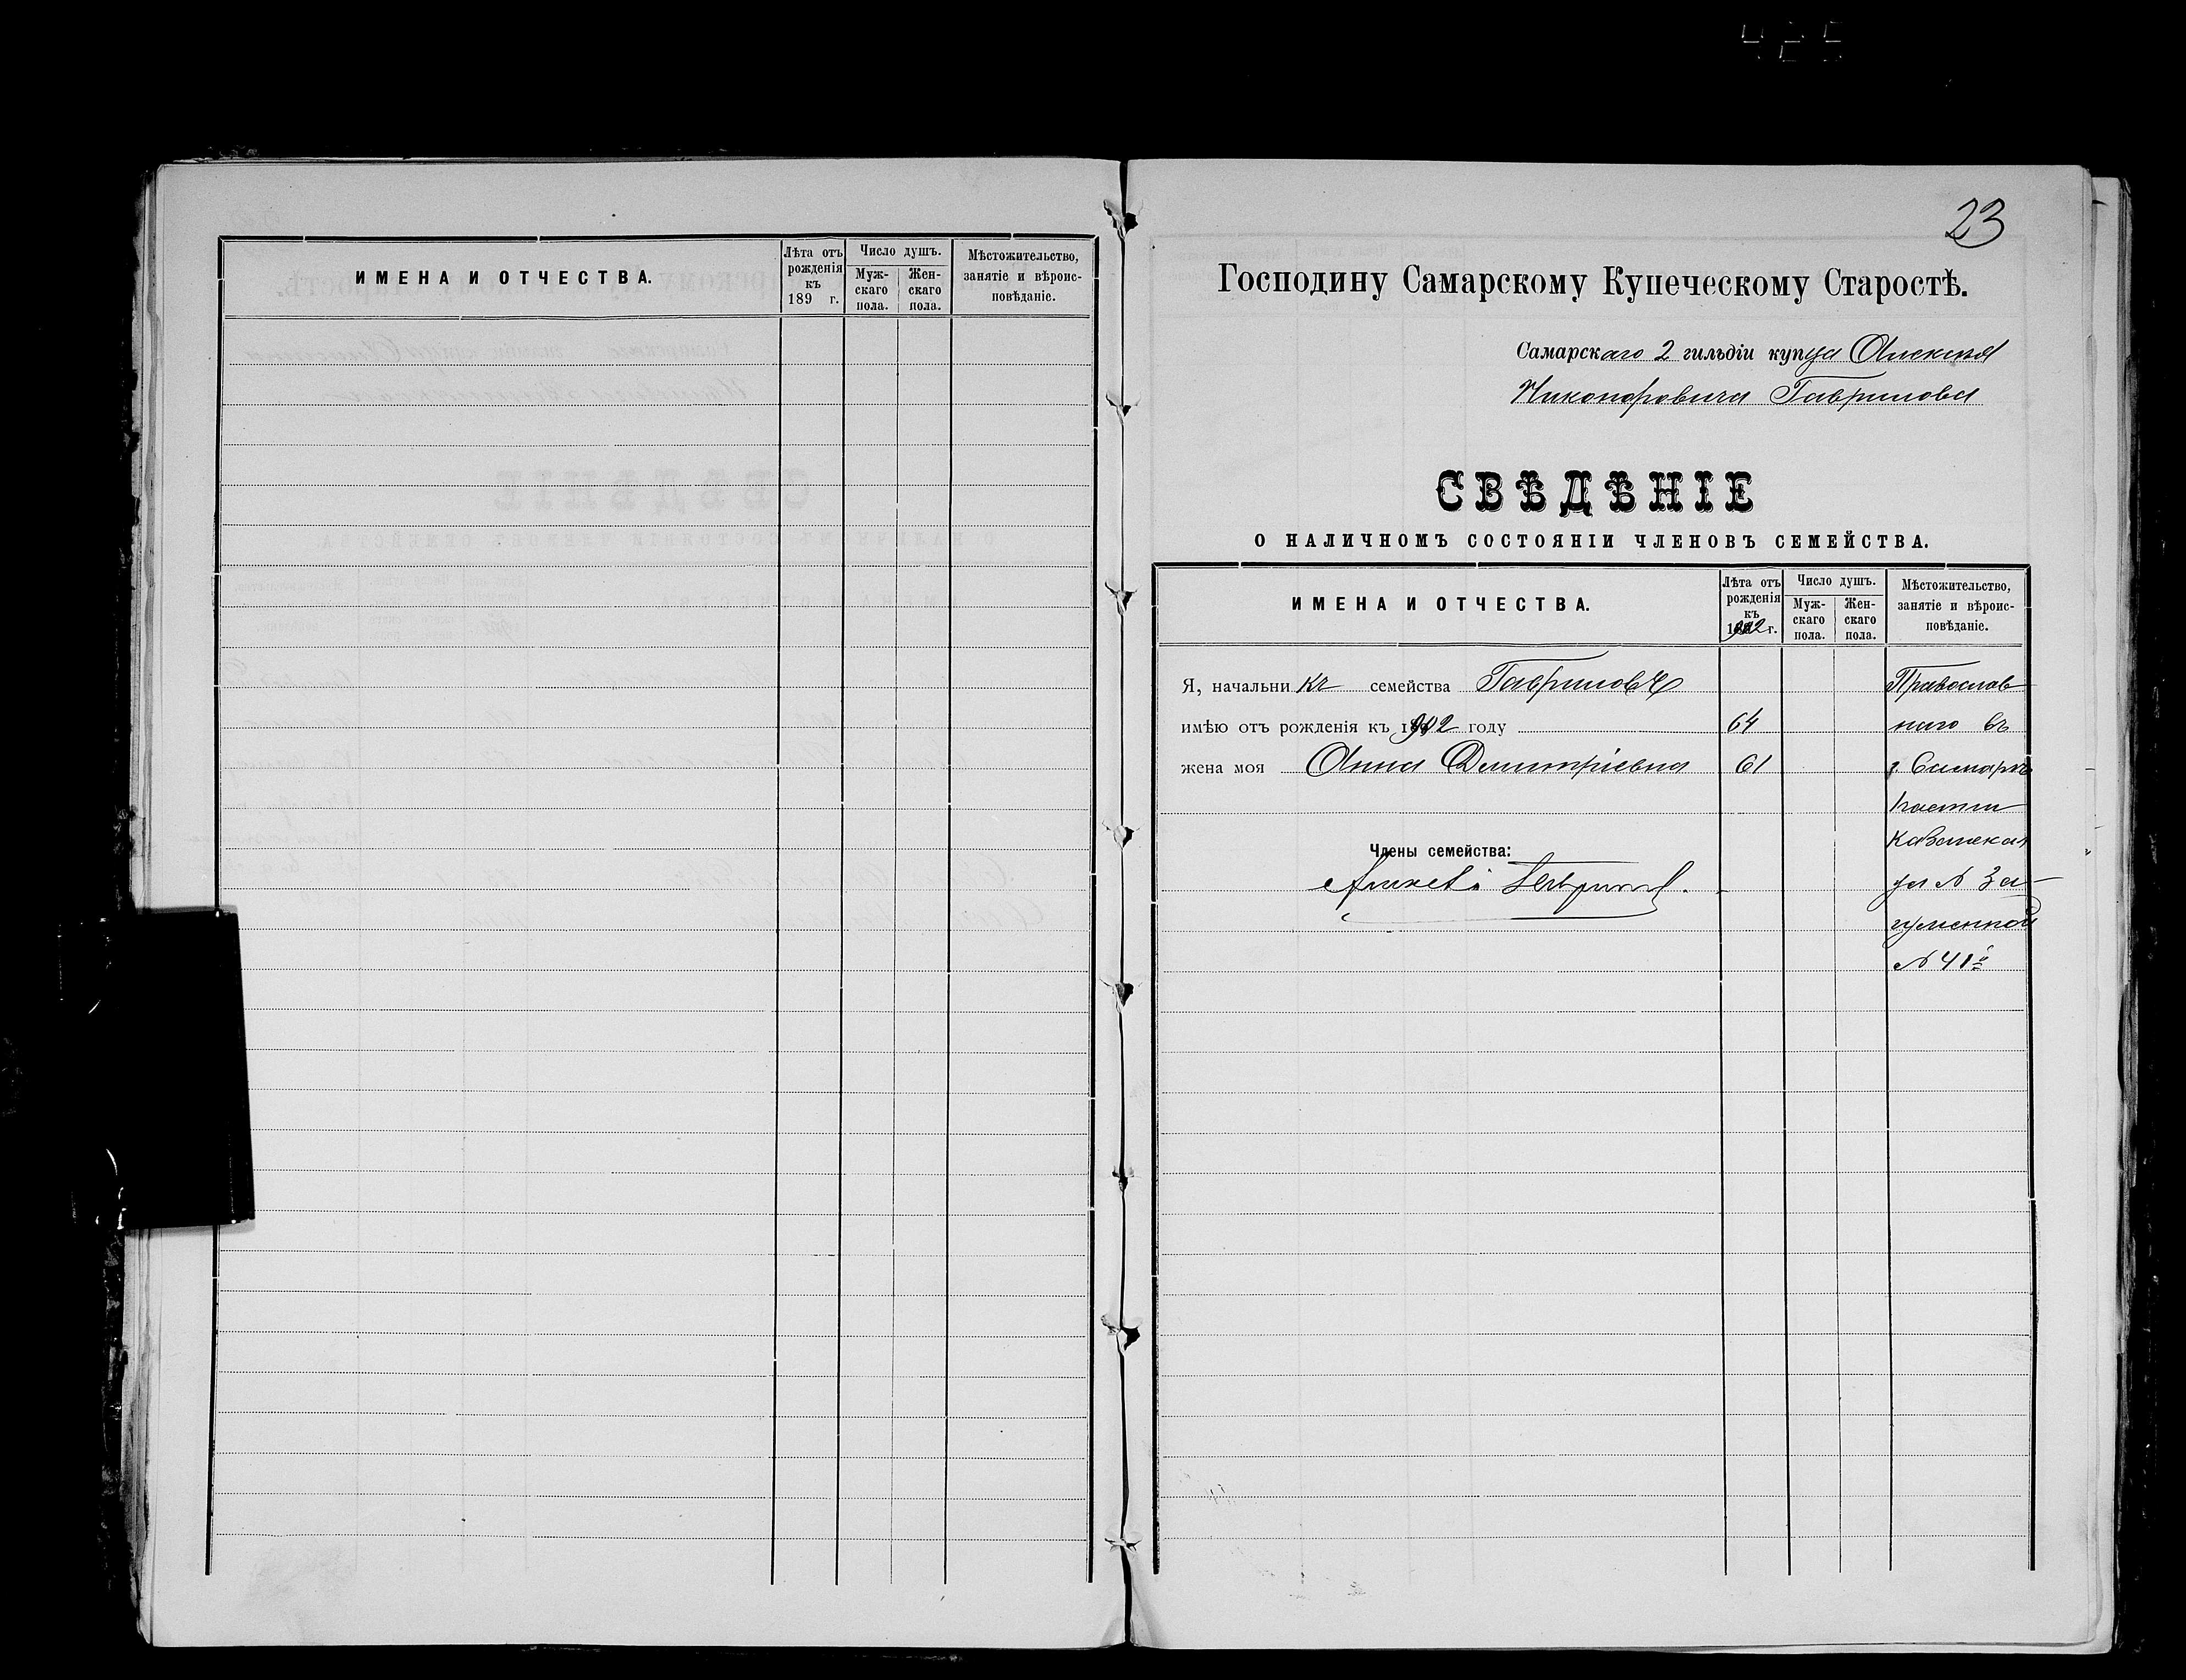 425
ИМЕНА И ОТЧЕСТВА.
Лѣта отъ рожденія къ 189 г.
Число душъ.
Мужскаго пола.
Женскаго пола.
Мѣстожительство, занятіе и вѣроисповѣданіе.
23
Господину Самарскому Купеческому Старостѣ.
Самарскаго 2 гильдіи купца Алексѣя
Никоноровича Гаврилова
СВѢДѢНІЕ
О НАЛИЧНОМЪ СОСТОЯНІИ ЧЛЕНОВЪ СЕМЕЙСТВА.
ИМЕНА И ОТЧЕСТВА.
Лѣта отъ рожденія къ 1902 г.
Число душъ.
Мужскаго пола.
Женскаго пола.
Мѣстожительство, занятіе и вѣроисповѣданіе.
Я, начальникъ семейства Гавриловъ Православ
имѣю отъ рожденія къ 1902 году 64 наго въ
жена моя Анна Димитріевна 61 г. Самарѣ
1 части
Казанская
Члены семейства:
Алексѣй Гавриловъ. ул За-
гуменной
№ 41й